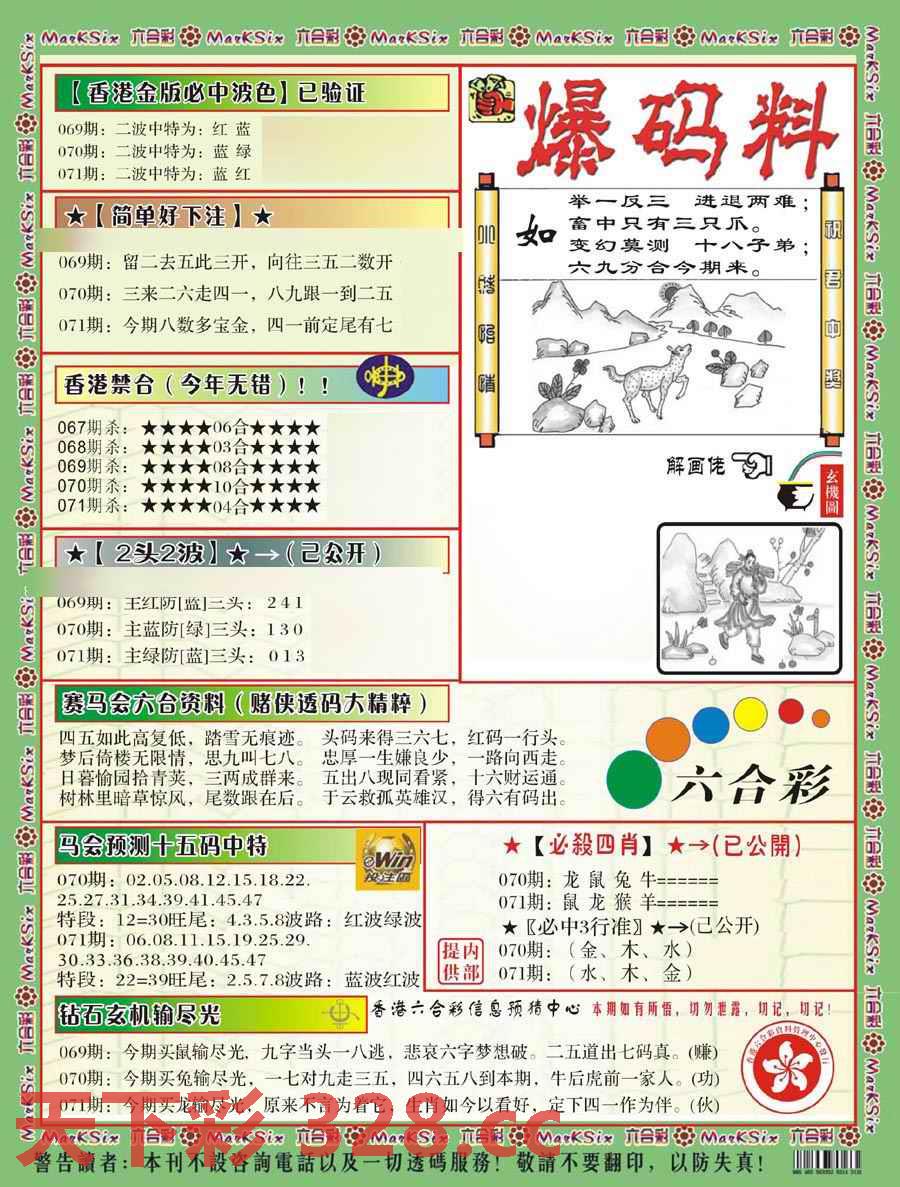 MarKSix 六合彩 MarKSix 六合彩 MarKSix 六合彩 MarKSix 六合彩 MarKSix 六合彩
【香港金版必中波色】已验证
069期：二波中特为：红 蓝
070期：二波中特为：蓝 绿
071期：二波中特为：蓝 红
★【简单好下注】★
069期：留二去五此三开，向往三五二数开
070期：三来二六走四一，八九跟一到二五
071期：今期八数多宝金，四一前定尾有七
香港禁合（今年无错）！！
067期杀：★★★★06合★★★★
068期杀：★★★★03合★★★★
069期杀：★★★★08合★★★★
070期杀：★★★★10合★★★★
071期杀：★★★★04合★★★★
★【2头2波】★→(已公开)
069期：主红防[蓝]三头：241
070期：主蓝防[绿]三头：130
071期：主绿防[蓝]三头：013
爆码料
如
举一反三 进退两难；
畜中只有三只爪。
变幻莫测 十八子弟；
六九分合今期来。
祝君中奖
解画佬
玄機圖
赛马会六合资料（赌侠透码大精粹）
四五如此高复低，踏雪无痕迹。 头码来得三六七，红码一行头。
梦后倚楼无限情，思九叫七八。 忠厚一生嫌良少，一路向西走。
日暮愉园拾青荚，三两成群来。 五出八现同看紧，十六财运通。
树林里暗草惊风，尾数跟在后。 于云救孤英雄汉，得六有码出。
六合彩
马会预测十五码中特
eWin
投注區
070期：02.05.08.12.15.18.22.
25.27.31.34.39.41.45.47
特段：12=30旺尾：4.3.5.8波路：红波绿波
071期：06.08.11.15.19.25.29.
30.33.36.38.39.40.45.47
特段：22=39旺尾：2.5.7.8波路：蓝波红波
★【必殺四肖】★→(已公開)
070期：龙 鼠 兔 牛======
071期：鼠 龙 猴 羊======
★〖必中3行准〗★→(已公开)
070期：（金、木、水）
071期：（水、木、金）
内部提供
钻石玄机输尽光
香港六合彩信息预猜中心
本期如有所悟，切勿泄露，切记，切记！
069期：今期买鼠输尽光，九字当头一八逃，悲哀六字梦想破。二五道出七码真。(赚)
070期：今期买兔输尽光，一七对九走三五，四六五八到本期，牛后虎前一家人。(功)
071期：今期买龙输尽光，原来不言为着它，生肖如今以看好，定下四一作为伴。(伙)
天下彩 328.cc
MarKSix 六合彩 MarKSix 六合彩 MarKSix 六合彩 MarKSix 六合彩 MarKSix 六合彩
警告讀者：本刊不設咨詢電話以及一切透碼服務！敬請不要翻印，以防失真！